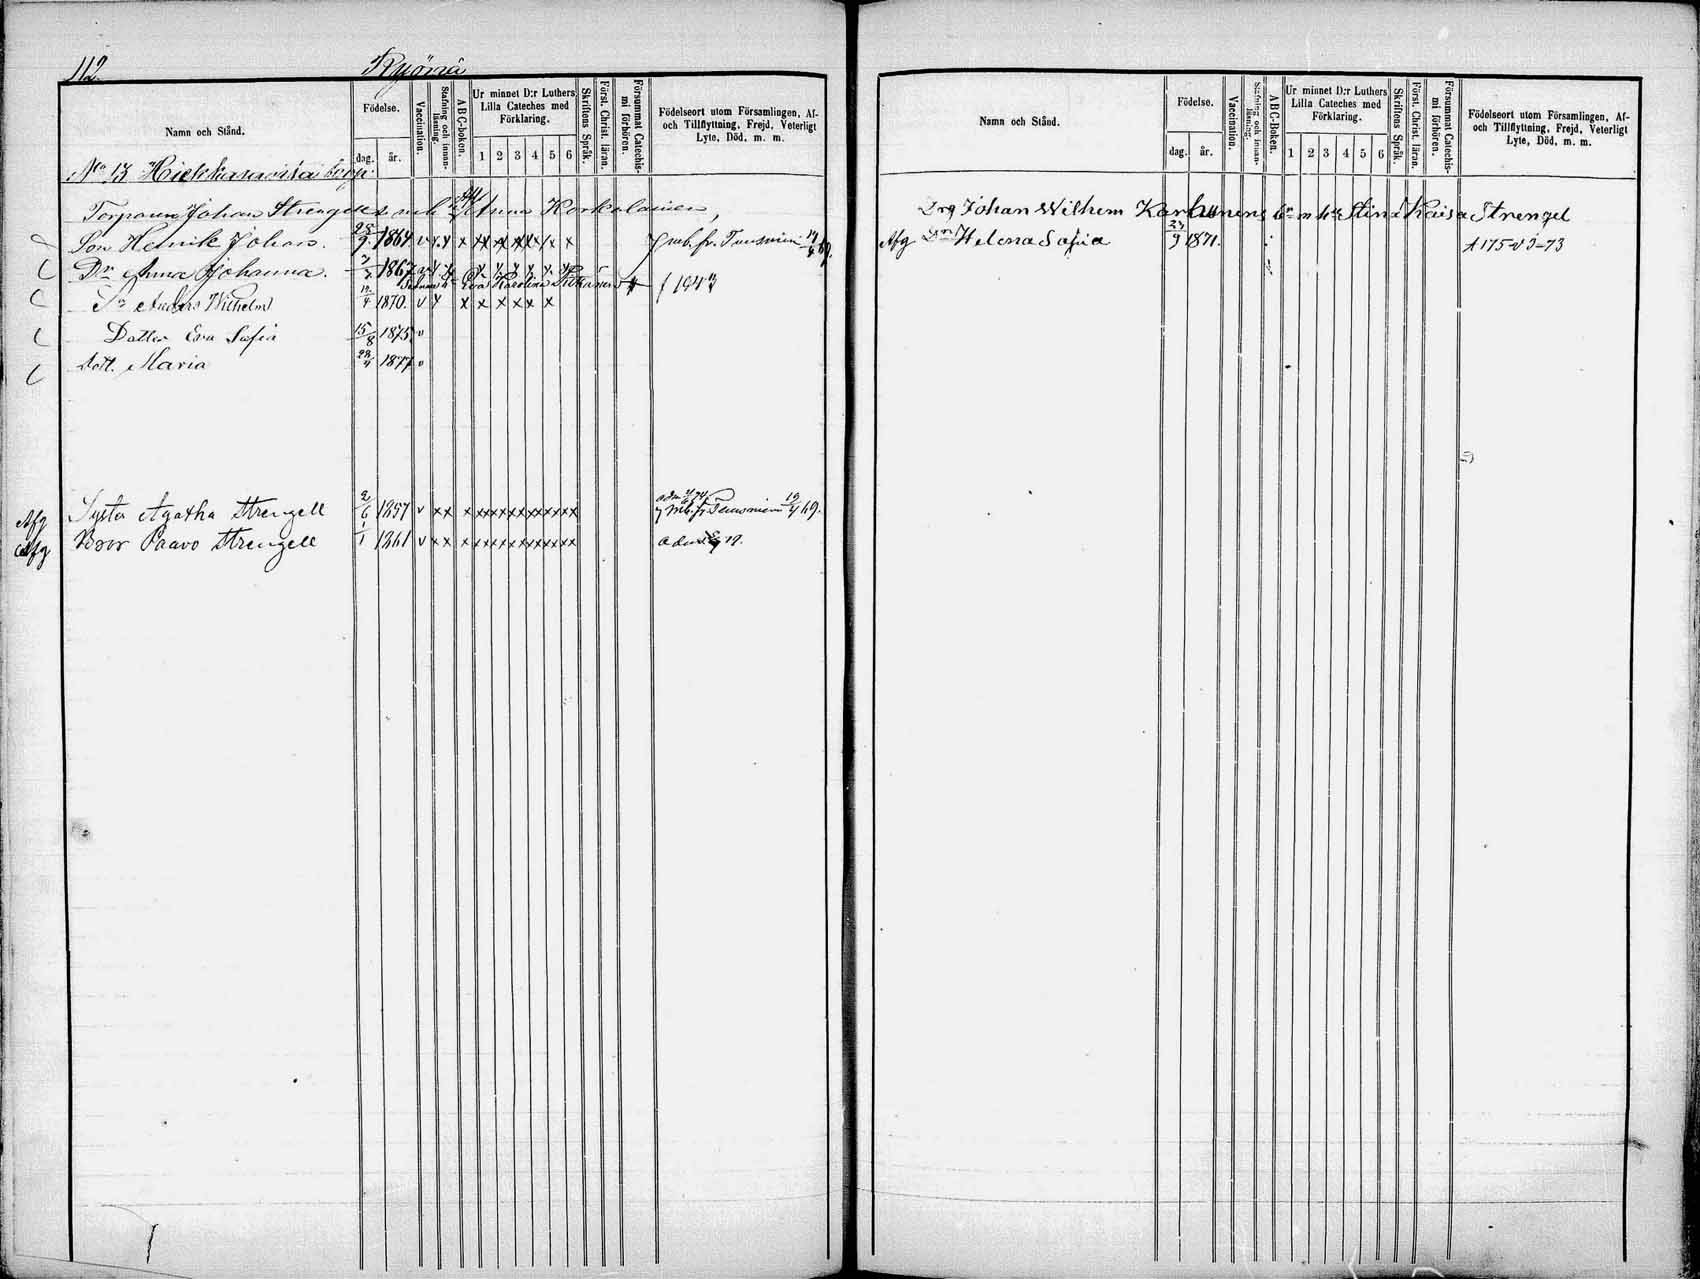 112.
Ryönä
Namn och Stånd.
Födelse.
dag.
år.
Vaccination.
Stafning och innanläsning.
A B C-boken.
Ur minnet D:r Luthers Lilla Cateches med Förklaring.
1 2 3 4 5 6
Skriftens Språk.
Först. Christ. läran.
Försummat Catechismi förhören.
Födelseort utom Församlingen, Af- och Tillflyttning, Frejd, Veterligt Lyte, Död, m. m.
No 13
Torparen Johan Strengel Anna Korkolainen,
Son Henrik Johan. 1864 v x x x x x x x x x mb. fr. Tuusniemi 69
Dr Anna Johanna. 1867 v
Eva Karolina
Sn Anders Wilhelm 1870. v x x x x x x x
Dotter Eva Sofia 15/8 1875 v
Dott. Maria 1877 v
Afg Syster Agatha Strengell 2/6 1857 v x x x xxxxxxxxxxx mb. fr. Tuusniemi 19/4 69.
Afg Bror Paavo Strengell 1/1 1861 v x x x xxxxxxxxxxx adm 79.
Namn och Stånd.
Födelse.
dag.
år.
Vaccination.
Stafning och innanläsning.
A B C-boken.
Ur minnet D:r Luthers Lilla Cateches med Förklaring.
1 2 3 4 5 6
Skriftens Språk.
Först. Christ. läran.
Försummat Catechismi förhören.
Födelseort utom Församlingen, Af- och Tillflyttning, Frejd, Veterligt Lyte, Död, m. m.
Drg Johan Wilhem Karhunens bn m h u Stina Kaisa Strengel
Afg Dr Helena Sofia 23/9 1871.